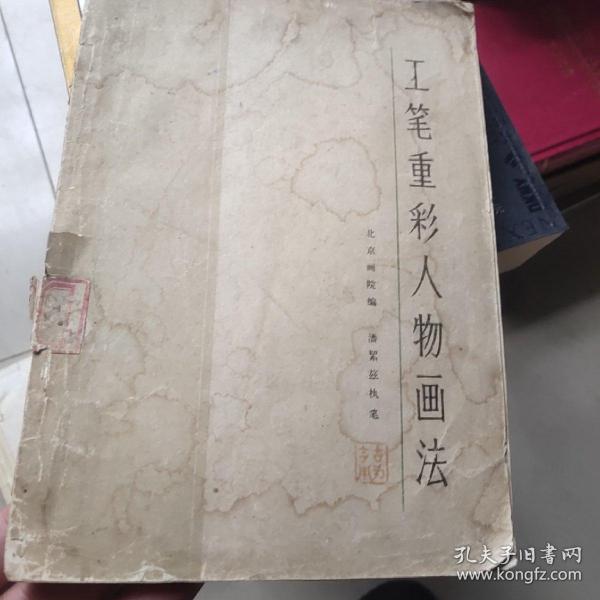 工笔重彩人物画法
北京画院编 潘絜兹执笔
DKNY
孔夫子旧书网
www.kongfz.com